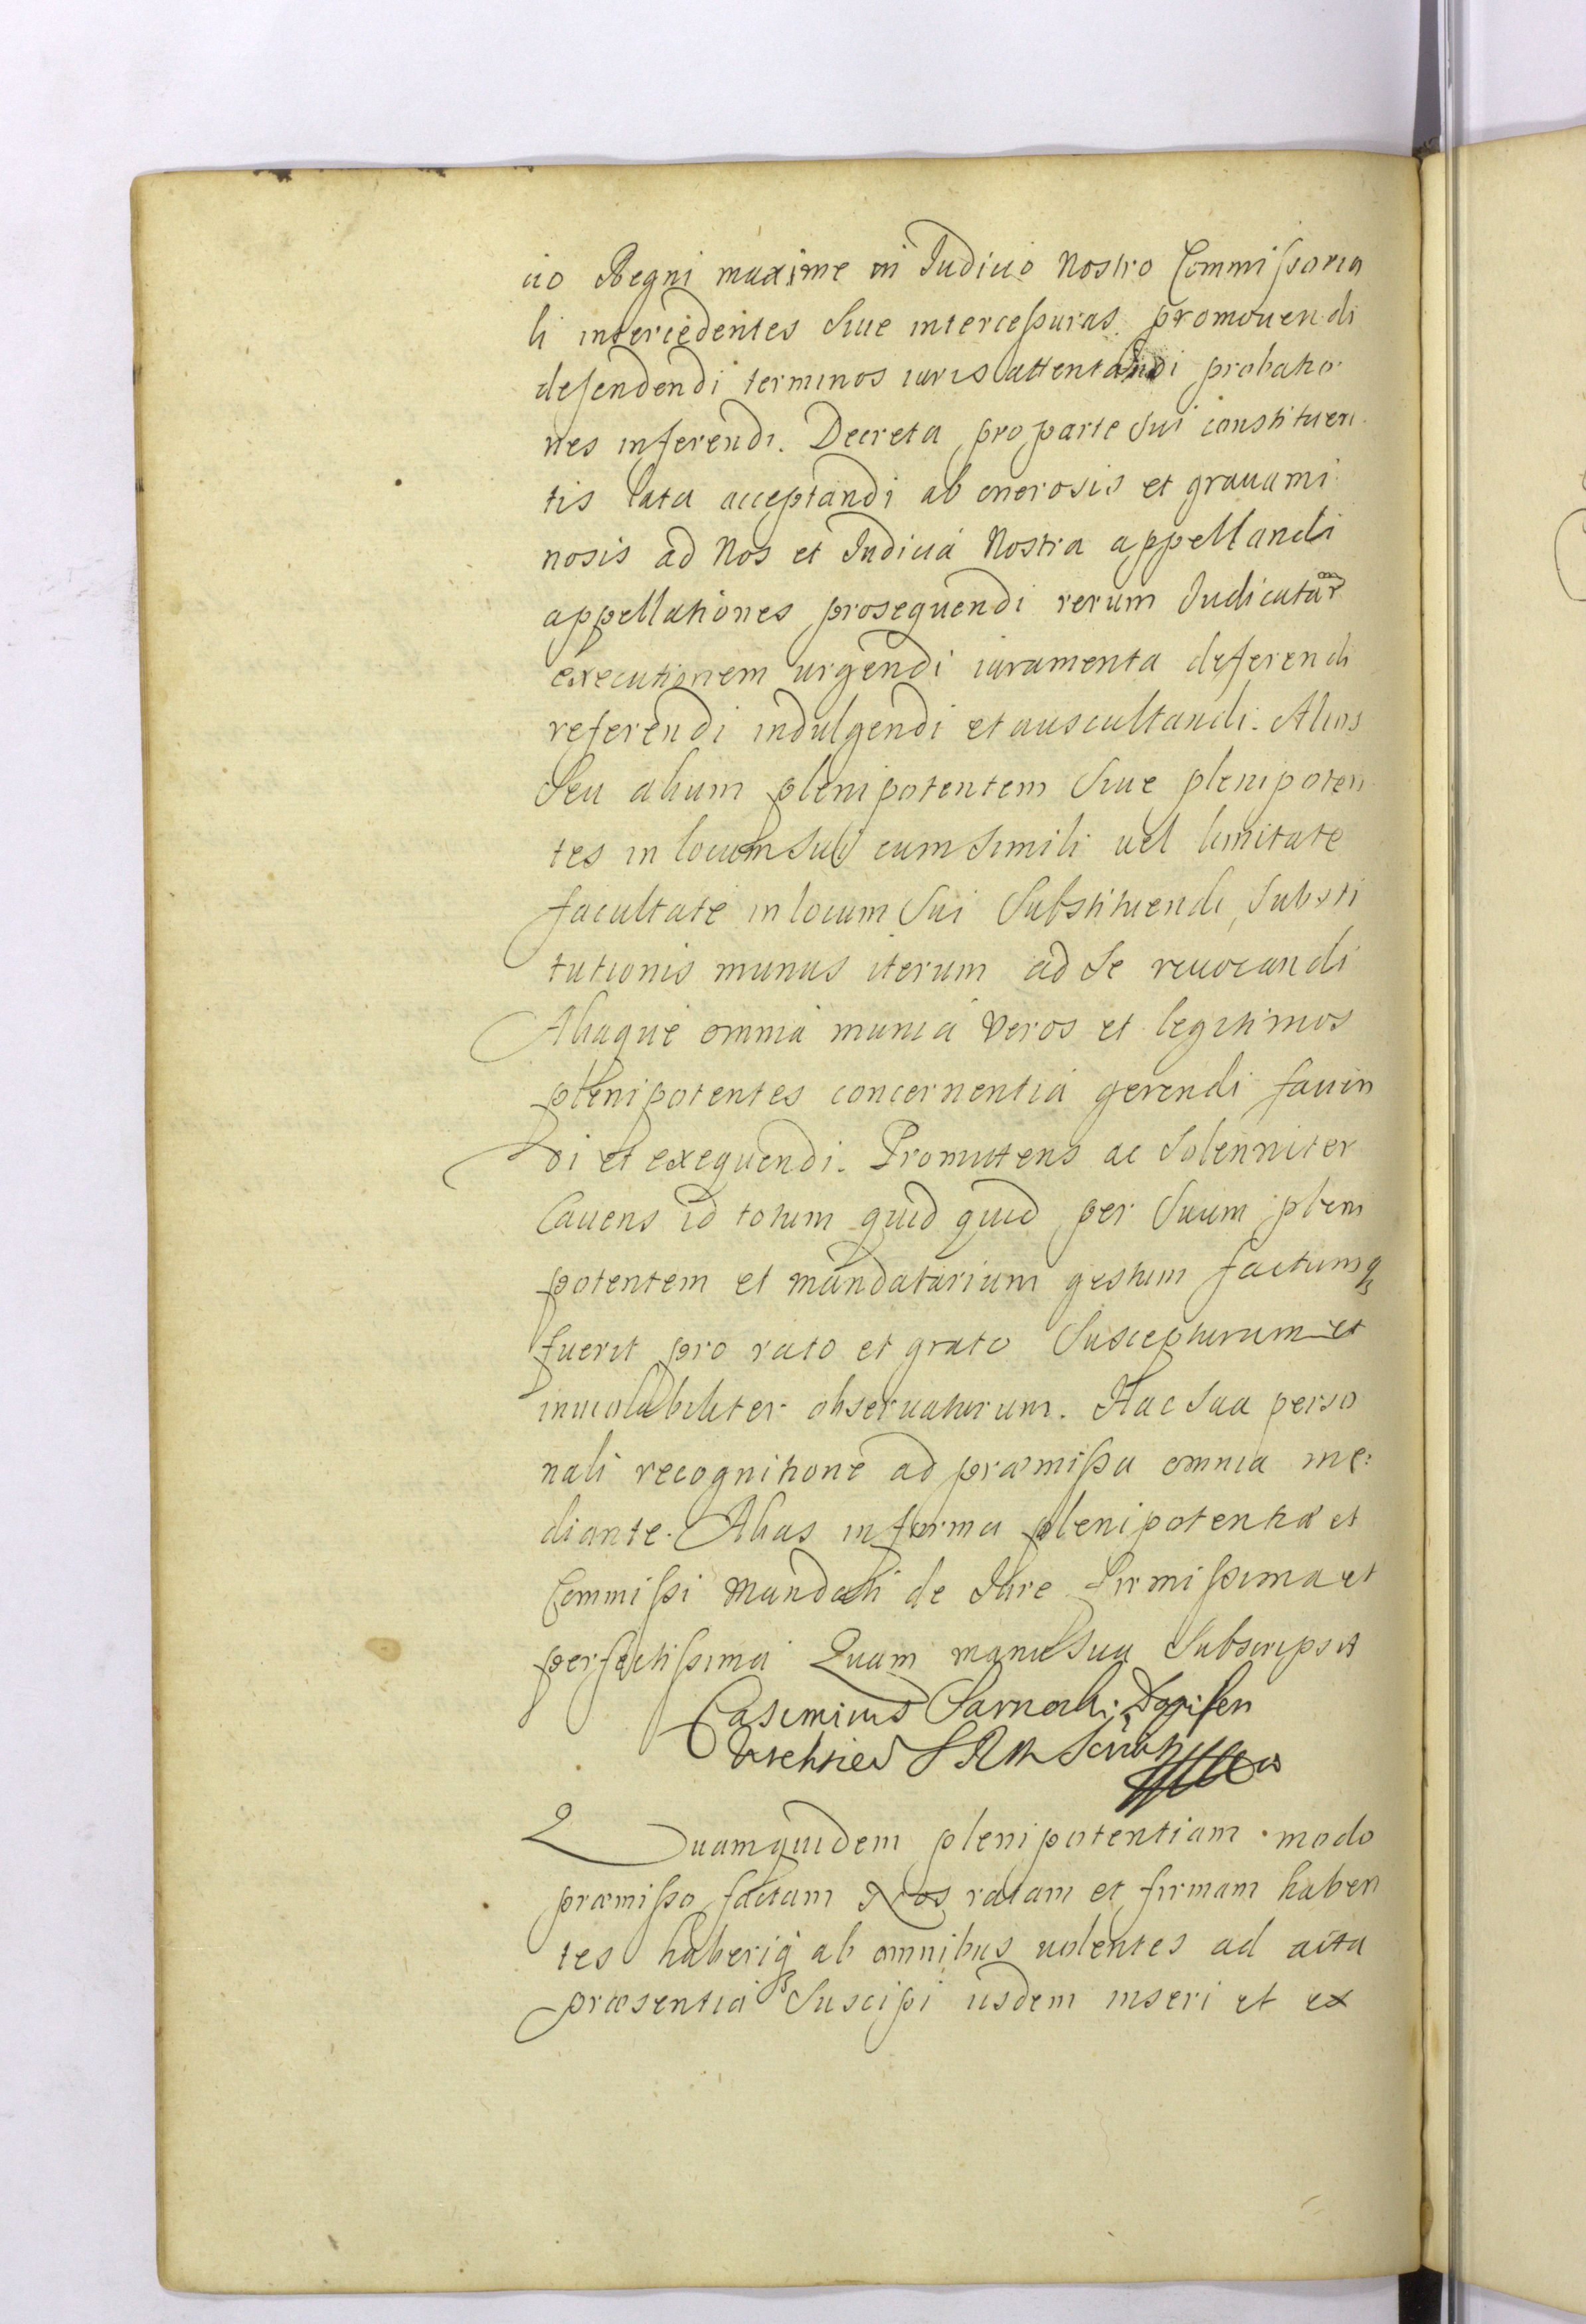 cio Regni maxime in Judicio Nostro Commissoria
li intercedentes Siue intercessuras promouendi
defendendi terminos iuris attentandi probatio
nes inferendi. Decreta pro parte Sui constituen
tis lata acceptandi ab onerosis et grauami
nosis ad Nos et Judicia Nostra appellandi
appellationes prosequendi rerum Judicatar
executionem urgendi iuramenta deferendi
referendi indulgendi et auscultandi. Alios
Seu alium plenipotentem Siue plenipoten
tes in locum Sui cum Simili uel limitate
facultate in locum Sui Substituendi, Substi
tutionis munus iterum ad Se reuocandi
Aliaque omnia munia veros et legitimos
plenipotentes concernentia gerendi facien
di et exequendi. Promittens ac Solenniter
Cauens id totum quid quid per Suum pleni
potentem et mandatarium gestum factumq
fuerit pro rato et grato Suscepturum et
inuiolabiliter obseruaturum. Hac Sua perso
nali recognitione ad præmissa omnia me:
diante. Alias in forma plenipotentiæ et
Commissi Mandati de Jure firmissima et
perfectissima Quam manu Sua Subscripsit
Casimirus
S R M
Quamquidem plenipotentiam modo
præmisso factam Nos ratam et firmam haben
tes haberiq ab omnibus uolentes ad acta
præsentia Suscipi iisdem inseri et ex